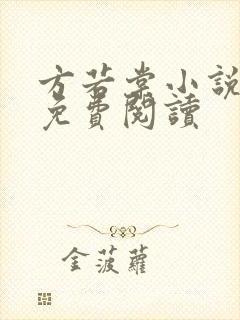 方若棠小說
免費閱讀
金菠蘿